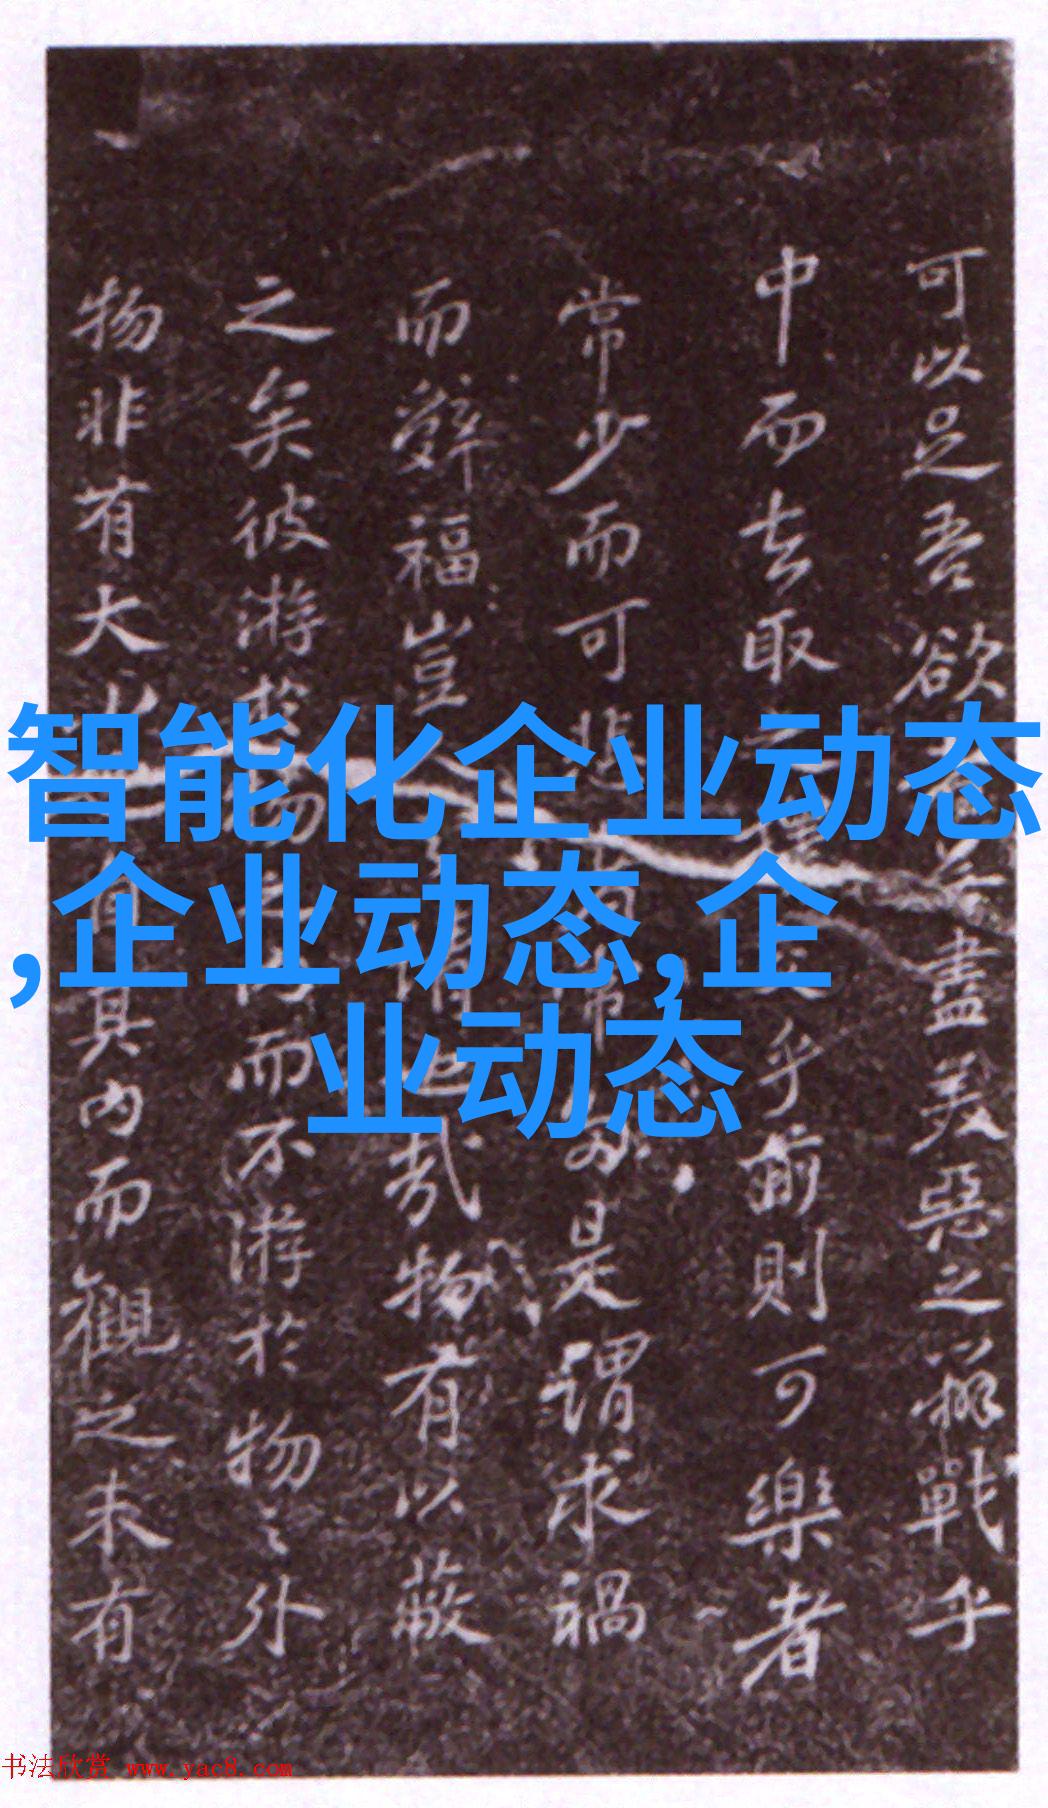 智能化企业动态
,企业动态,企
业动态
可以足吾欲盡美惡之辨戰乎
中而去取乎前則可樂者
常少而可悲是謂求禍
而辭福豈哉物有以蔽
之矣彼游於而不游於物之外
物非有大其內而觀之未有
书法欣赏 www.yac8.com